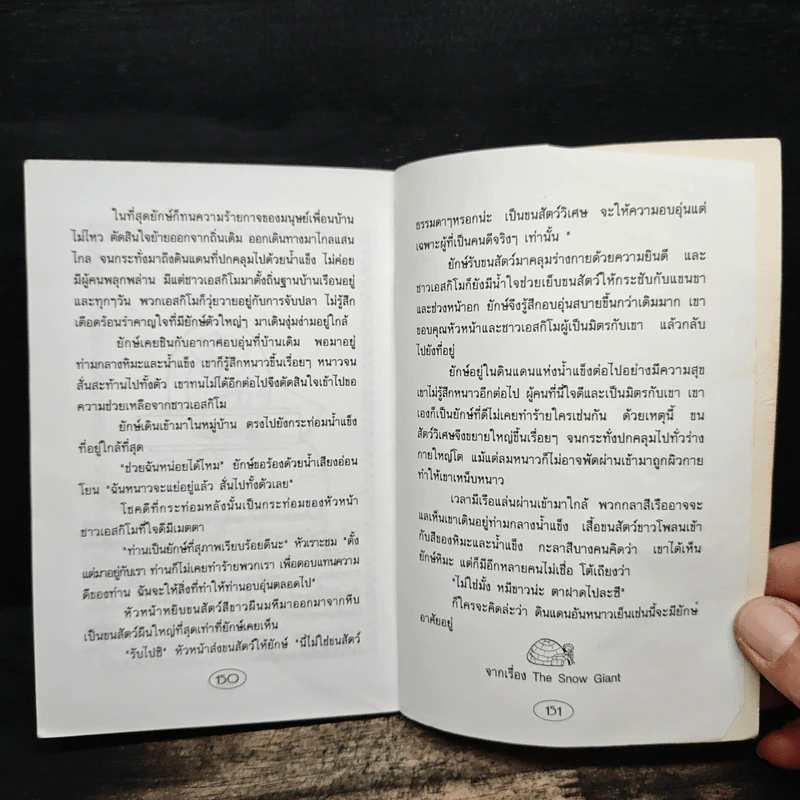 ในที่สุดยักษ์ก็ทนความร้ายกาจของมนุษย์เพื่อนบ้าน
ไม่ไหว ตัดสินใจย้ายออกจากถิ่นเดิม ออกเดินทางมาไกลแสน
ไกล จนกระทั่งมาถึงดินแดนที่ปกคลุมไปด้วยน้ำแข็ง ไม่ค่อย
มีผู้คนพลุกพล่าน มีแต่ชาวเอสกิโมมาตั้งถิ่นฐานบ้านเรือนอยู่
และทุกๆวัน พวกเอสกิโมก็วุ่นวายอยู่กับการจับปลา ไม่รู้สึก
เดือดร้อนรำคาญใจที่มียักษ์ตัวใหญ่ๆ มาเดินงุ่มง่ามอยู่ใกล้
ยักษ์เคยชินกับอากาศอบอุ่นที่บ้านเดิม พอมาอยู่
ท่ามกลางหิมะและน้ำแข็ง เขาก็รู้สึกหนาวขึ้นเรื่อยๆ หนาวจน
สั่นสะท้านไปทั้งตัว เขาทนไม่ได้อีกต่อไปจึงตัดสินใจเข้าไปขอ
ความช่วยเหลือจากชาวเอสกิโม
ยักษ์เดินเข้ามาในหมู่บ้าน ตรงไปยังกระท่อมน้ำแข็ง
ที่อยู่ใกล้ที่สุด
"ช่วยฉันหน่อยได้ไหม" ยักษ์ขอร้องด้วยน้ำเสียงอ่อน
โยน "ฉันหนาวจะแย่อยู่แล้ว สั่นไปทั้งตัวเลย"
โชคดีที่กระท่อมหลังนั้นเป็นกระท่อมของหัวหน้า
ชาวเอสกิโมที่ใจดีมีเมตตา
"ท่านเป็นยักษ์ที่สุภาพเรียบร้อยดีนะ" หัวเราะชม "ตั้ง
แต่มาอยู่กับเรา ท่านก็ไม่เคยทำร้ายพวกเรา เพื่อตอบแทนความ
ดีของท่าน ฉันจะให้สิ่งที่ทำให้ท่านอบอุ่นตลอดไป"
หัวหน้าหยิบขนสัตว์สีขาวผืนมหึมาออกมาจากหีบ
เป็นขนสัตว์ผืนใหญ่ที่สุดเท่าที่ยักษ์เคยเห็น
"รับไปซิ" หัวหน้าส่งขนสัตว์ให้ยักษ์ "นี่ไม่ใช่ขนสัตว์
150
ธรรมดาๆหรอกน่ะ เป็นขนสัตว์วิเศษ จะให้ความอบอุ่นแต่
เฉพาะผู้ที่เป็นคนดีจริงๆ เท่านั้น "
ยักษ์รับขนสัตว์มาคลุมร่างกายด้วยความยินดี และ
ชาวเอสกิโมก็ยังมีน้ำใจช่วยเย็บขนสัตว์ให้กระชับกับแขนขา
และช่วงหน้าอก ยักษ์จึงรู้สึกอบอุ่นสบายขึ้นกว่าเดิมมาก เขา
ขอบคุณหัวหน้าและชาวเอสกิโมผู้เป็นมิตรกับเขา แล้วกลับ
ไปยังที่อยู่
ยักษ์อยู่ในดินแดนแห่งน้ำแข็งต่อไปอย่างมีความสุข
เขาไม่รู้สึกหนาวอีกต่อไป ผู้คนที่นี่ใจดีและเป็นมิตรกับเขา เขา
เองก็เป็นยักษ์ที่ดีไม่เคยทำร้ายใครเช่นกัน ด้วยเหตุนี้ ขน
สัตว์วิเศษจึงขยายใหญ่ขึ้นเรื่อยๆ จนกระทั่งปกคลุมไปทั่วร่าง
กายใหญ่โต แม้แต่ลมหนาวก็ไม่อาจพัดผ่านเข้ามาถูกผิวกาย
ทำให้เขาเหน็บหนาว
เวลามีเรือแล่นผ่านเข้ามาใกล้ พวกกลาสีเรืออาจจะ
แลเห็นเขาเดินอยู่ท่ามกลางน้ำแข็ง เสื้อขนสัตว์ขาวโพลนเข้า
กับสีของหิมะและน้ำแข็ง กะลาสีบางคนคิดว่า เขาได้เห็น
ยักษ์หิมะ แต่ก็มีอีกหลายคนไม่เชื่อ โต้เถียงว่า
"ไม่ใช่มั้ง หมีขาวน่ะ ตาฝาดไปละซี"
ก็ใครจะคิดล่ะว่า ดินแดนอันหนาวเย็นเช่นนี้จะมียักษ์
อาศัยอยู่
จากเรื่อง The Snow Giant
151